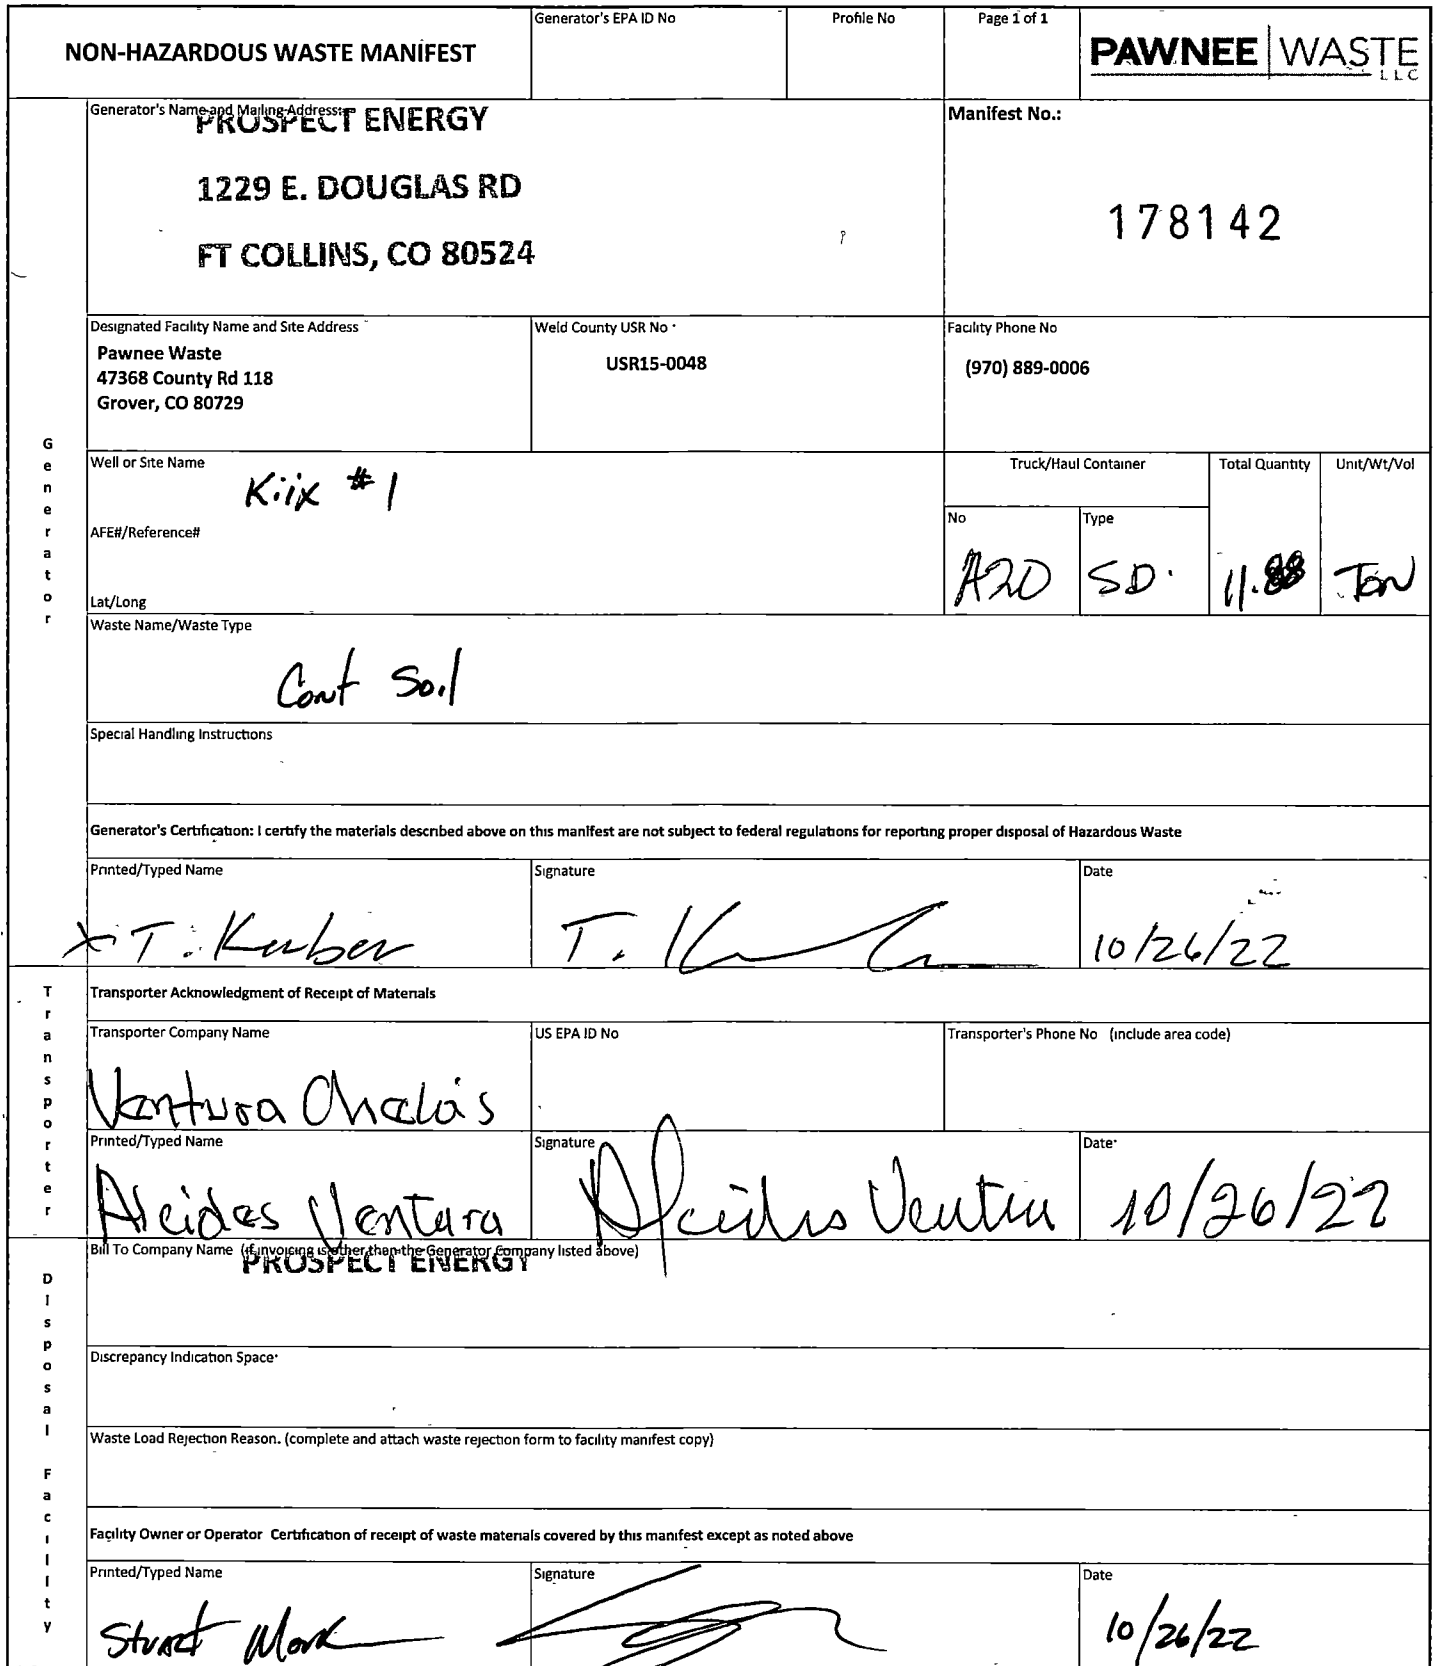 NON-HAZARDOUS WASTE MANIFEST
Generator's EPA ID No
Profile No
Page 1 of 1
PAWNEE WASTE
LLC
Generator's Name and Mailing Address:
PROSPECT ENERGY
1229 E. DOUGLAS RD
FT COLLINS, CO 80524
Manifest No.:
178142
Designated Facility Name and Site Address
Pawnee Waste
47368 County Rd 118
Grover, CO 80729
Weld County USR No
USR15-0048
Facility Phone No
(970) 889-0006
Generator
Well or Site Name
Kiix #1
AFE#/Reference#
Lat/Long
Truck/Haul Container
No
A20
Type
SD.
Total Quantity
11.88
Unit/Wt/Vol
Ton
Waste Name/Waste Type
Cont Soil
Special Handling Instructions
Generator's Certification: I certify the materials described above on this manifest are not subject to federal regulations for reporting proper disposal of Hazardous Waste
Printed/Typed Name
x T. Kerber
Signature
T. K
Date
10/26/22
Transporter
Transporter Acknowledgment of Receipt of Materials
Transporter Company Name
Ventura
US EPA ID No
Transporter's Phone No (include area code)
Printed/Typed Name
Alcides Ventura
Signature
Alcides Ventura
Date
10/26/22
Disposal Facility
Bill To Company Name (if invoicing is other than the Generator Company listed above)
PROSPECT ENERGY
Discrepancy Indication Space
Waste Load Rejection Reason. (complete and attach waste rejection form to facility manifest copy)
Facility Owner or Operator Certification of receipt of waste materials covered by this manifest except as noted above
Printed/Typed Name
Stuart Mork
Signature
Date
10/26/22